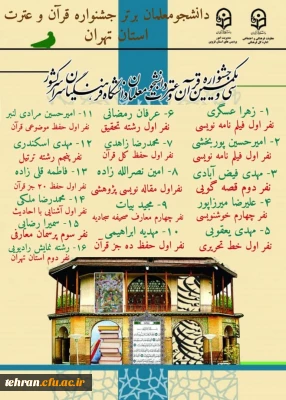 دانشجومعلمان برتر جشنواره قرآن و عترت
استان تهران
سی و یکمین جشنواره قرآن و عترت دانشجومعلمان دانشگاه فرهنگیان سراسر کشور
۱- زهرا عسگری
نفر اول فیلم نامه نویسی
۲- امیرحسین پوربخشی
نفر اول فیلم نامه نویسی
۳- مهدی فیض آبادی
نفر دوم قصه گویی
۴- علیرضا میرزاپور
نفر چهارم خوشنویسی
۵- مهدی یعقوبی
نفر اول خط تحریری
۶- عرفان رمضانی
نفر اول رشته تحقیق
۷- محمدرضا زاهدی
نفر اول حفظ کل قرآن
۸- امین نصرالله زاده
نفر اول مقاله نویسی پژوهشی
۹- مجید بیات
نفر چهارم معارف صحیفه سجادیه
۱۰- مهدیه ابراهیمی
نفر اول حفظ ده جز قرآن
۱۱- امیرحسین مرادی لنبر
نفر اول حفظ موضوعی قرآن
۱۲- مهدی اسکندری
نفر پنجم رشته ترتیل
۱۳- فاطمه قلی زاده
نفر اول حفظ ۲۰ جز قرآن
۱۴- محمدرضا ملکی
نفر اول آشنایی با احادیث
۱۵- سمیرا رضایی
نفر سوم پرسمان معارفی
۱۶- رشته نمایش رادیویی
نفر دوم استان تهران
tehran.cfu.ac.ir